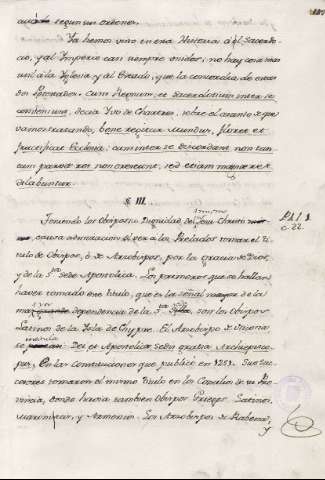 segun sus ordenes.
Ya hemos visto en esta Historia á el Sacerdo-
cio, y al Imperio casi siempre unidos; no hay cosa mas
util á la Iglesia y al Estado, que la concordia de estas
dos Potestades. Cum Regnum, et Sacerdotium inter se
conveniunt, decia Yvo de Chartres, sobre el asunto de que
vamos tratando, bene regitur Mundus, floret et
fructificat Ecclesia; cum inter se discordant, non tan-
tum parvæ res non crescunt, sed etiam magnæ res
dilabuntur.
§ III.
Teniendo los Obispos su Dignidad del mismo Jesu Christo
causa admiracion el ver a los Prelados tomar el ti-
tulo de Obispos, ó de Arzobispos, por la gracia de Dios,
y de la Sta. Sede Apostolica. Los primeros que se hallan
haver tomado este titulo, que es la señal mayor de la
dependencia de la Sta. Silla, son los Obispos
Latinos de la Ysla de Chypre. El Arzobispo de Nicosia,
Dei et Apostolicæ Sedis gratia Archiepisco-
pus, en las Constituciones que publicó en 1251. Sus suc-
cesores tomaron el mismo titulo en los Concilios de su Pro-
vincia, donde havia tambien Obispos Griegos, Latinos,
y Armenios. Los Arzobispos de Rabena,
y
P. 1. l. 1.
c. 22.